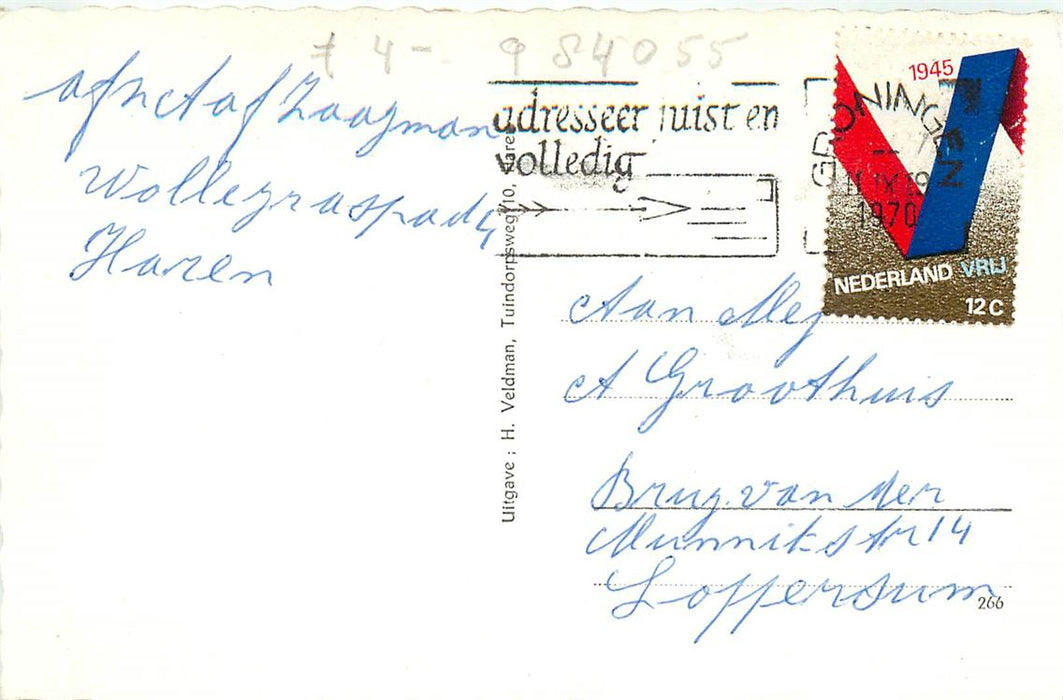 7 4- 984055
afz ct af Zaagman
Wollegraspad 4
Haren
adresseer juist en
volledig
GRONINGEN
1970
1945
NEDERLAND VRIJ
12 C
Uitgave : H. Veldman, Tuindorpsweg 10, Haren
Aan Mej
A Groothuis
Brug. van der
Munnikstr 14
Loppersum
266